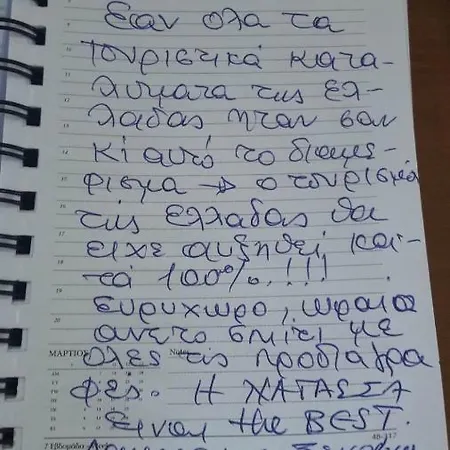 Εαν ολα τα
τουριστικά κατα-
λυματα της ελ-
λαδας ηταν σαν
κι αυτό το διαμε-
ρισμα → ο τουρισμό
της ελλαδας θα
ειχε αυξηθεί κα-
τά 100%.!!!
ευρυχωρο, ωραιο
ανετο σπίτι με
ΜΑΡΤΙΟΣ Notes
ολες τις προδιαγρα
φες. Η ΧΑΤΑΣΣΑ
ειναι the BEST.
7 Εβδομάδα